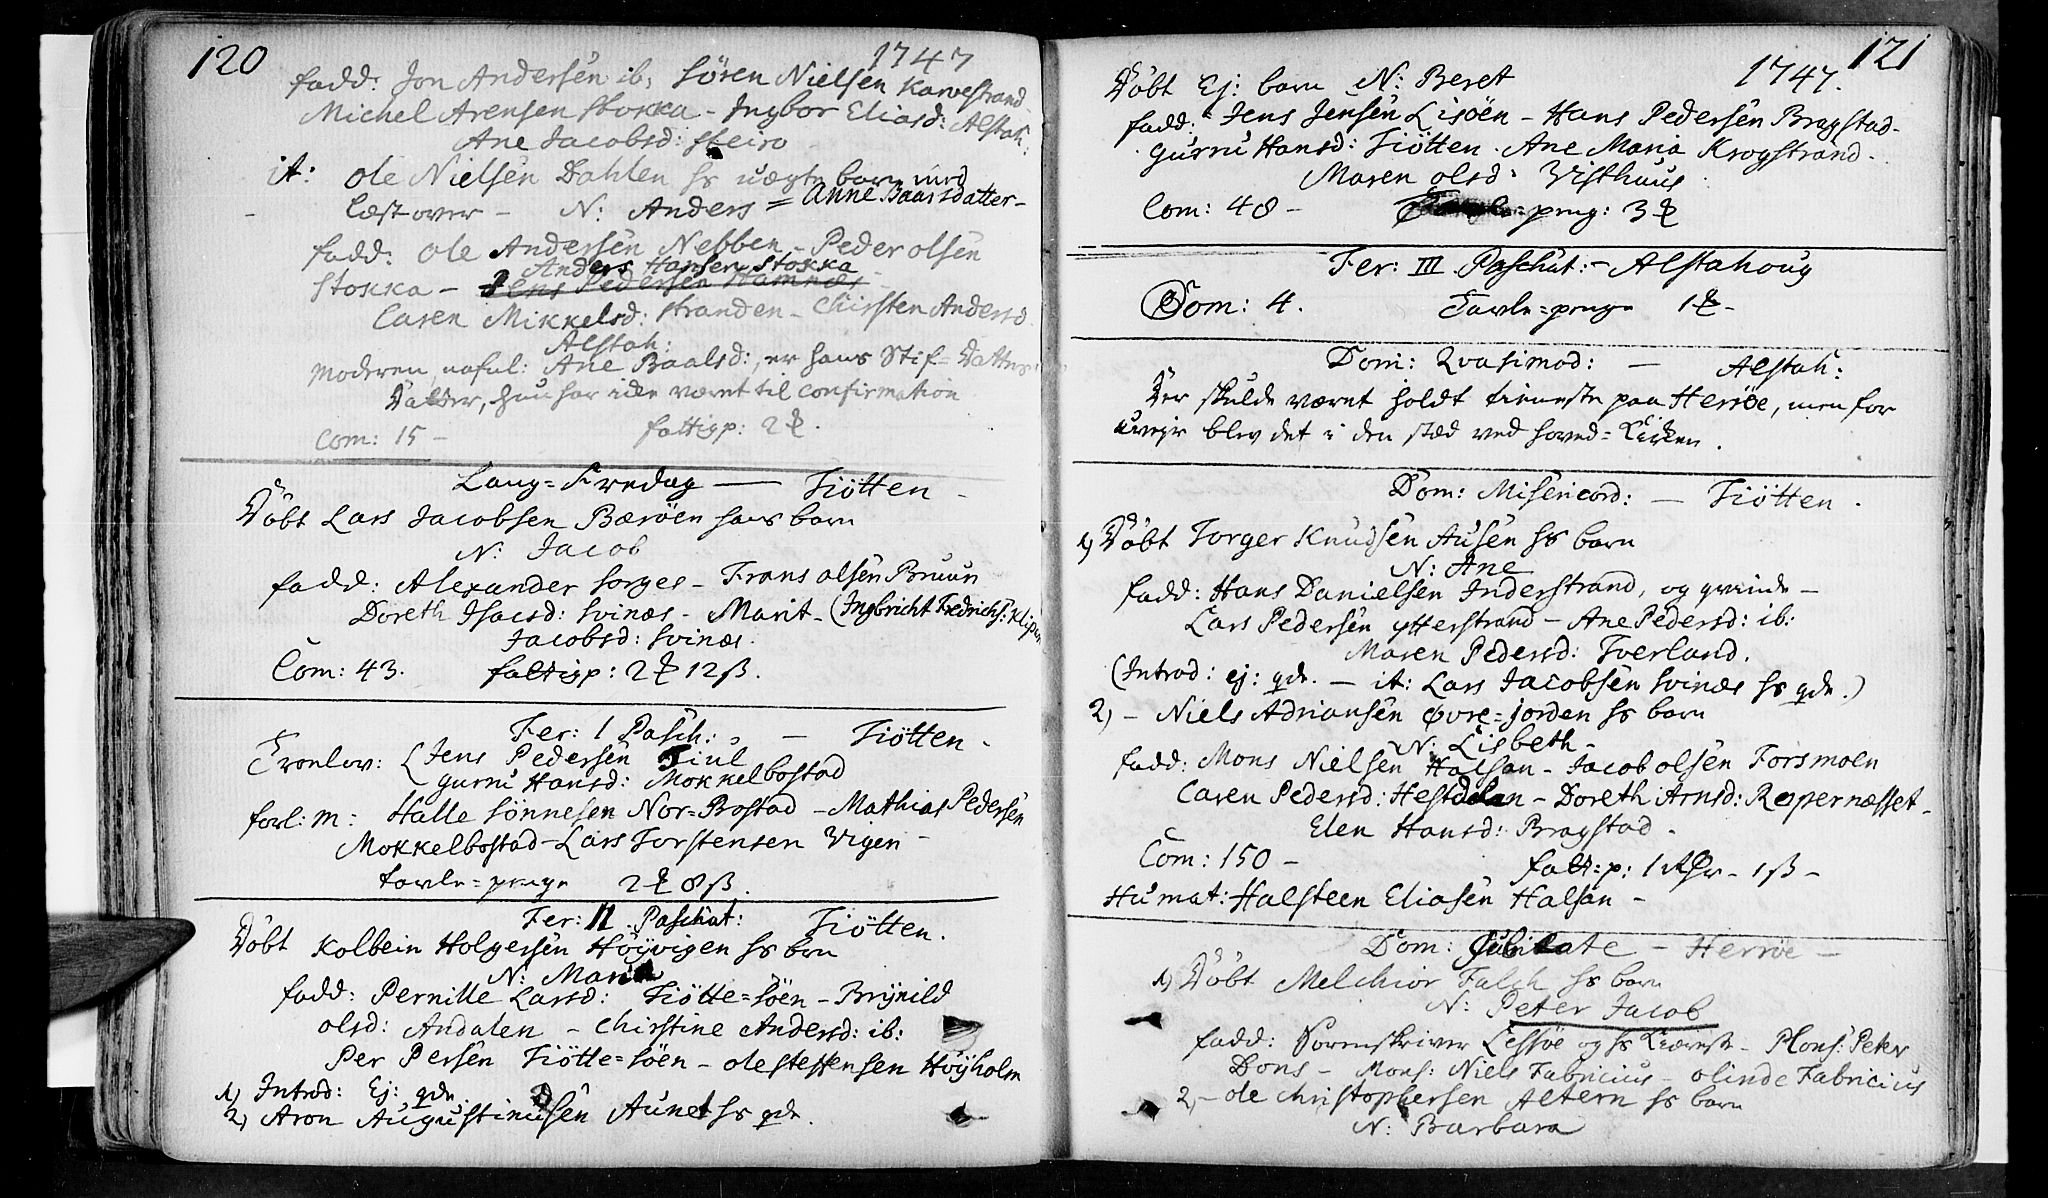 120
1747
fadd: Jon Andersen ib: Sören Nielsen Karvestrand
Michel Arensen Stokka - Ingbor Eliasd: Alstah:
Ane Jacobsd: Steiro
it: Ole Nielsen Dahlen hs uægte barn med
Læstover - N: Anders = Anne Baarsdatter -
fadd: Ole Andersen Nebben - Peder olsen
Anders Hansen Stokka
Stokka - Jens Pedersen Hamnæs
Caren Mikkelsd: Stranden - Chirsten Andersd
Alstah:
Moderen, nafnl: Ane Baalsd:, er hans Stif-Datters
Datter, hun har icke været til confirmation
Com: 15 - fattigp: 2 ꝝ.
Lang-Fredag — Tiötten -
Döbt Lars Jacobsen Bæröen hans barn
N: Jacob
fadd: Alexander Sorges - Frans olsen Bruun
Doreth Isacsd: Svinæs - Marit - (Ingbricht Fredrichs: Klipen
Jacobsd: Svinæs.
Com: 43. fattigp: 2 ꝝ 12 ß.
Fer: I Pasch: - Tiötten -
Trolov: (Jens Pedersen Tiul
Gurru Hansd: Mokkelbostad
forl: m: Halle Sönnesen Nor-Bostad - Mathias Pedersen
Mokkelbostad - Lars Torstensen Vigen -
tavle-penge 2 ꝝ 8 ß.
Fer: II Paschat: Tiötten.
Döbt Kolbein Holgersen Höyvigen hs brn
N: Maria
fadd: Pernille Larsd: Tiötte-söen - Brynild
olsd: Andalen - Chirstine Andersd: ib:
Per Persen Tiötte-söen - ole steffensen Höyholm
1) Introd: Ej: qde.
2) Aron Augustinusen Aunet hs qde.
121
1747.
Döbt Ej: barn N: Beret
fadd: Jens Jensen Lisöen - Hans Pedersen Bragstad -
Gurru Hansd: Tiötten. Ane Maria Krogstrand.
Maren olsd: Visthuus.
Com: 48 - peng: 3 ꝝ
Fer: III Paschat: - Alstahoug
Com: 4. Tavle-penge 1 ꝝ -
Dom: Qvasimod: — Alstah:
Der skulde været holdt tieneste paa Herröe, men for
uvejr blev det i den stæd ved hoved-Kirken.
Dom: Misericord: — Tiötten.
1) Döbt Torger Knudsen Ausen hs barn
N: Ane
fadd: Hans Danielsen Inderstrand, og qvinde -
Lars Pedersen ytterstrand - Ane Pedersd: ib:
Maren Pedersd: Tverland.
(Introd: ej: qde. - it: Lars Jacobsen Svinæs hs qde.)
2) - Niels Adriansen Øvre-jorden hs barn
N: Lisbeth -
fadd: Mons Nielsen Halsan - Jacob olsen Forsmoen
Caren Pedersd: Hestdalen - Doreth Arnsd: Repernæsset -
Elen Hansd: Bragstad -
Com: 150 - fatt: p: 1 Rdlr - 1 ß -
Humat: Halsteen Eliasen Halsan -
Dom: Jubilate - Herröe -
1) Döbt Melchior Falch hs barn
N: Peter Jacob
fadd: Sorenskriver Lessöe og hs Kiæreste - Mons: Peter
Dons - Mons: Niels Fabricius - olinde Fabricius
2, - ole Christophersen Altern hs barn
N: Barbara